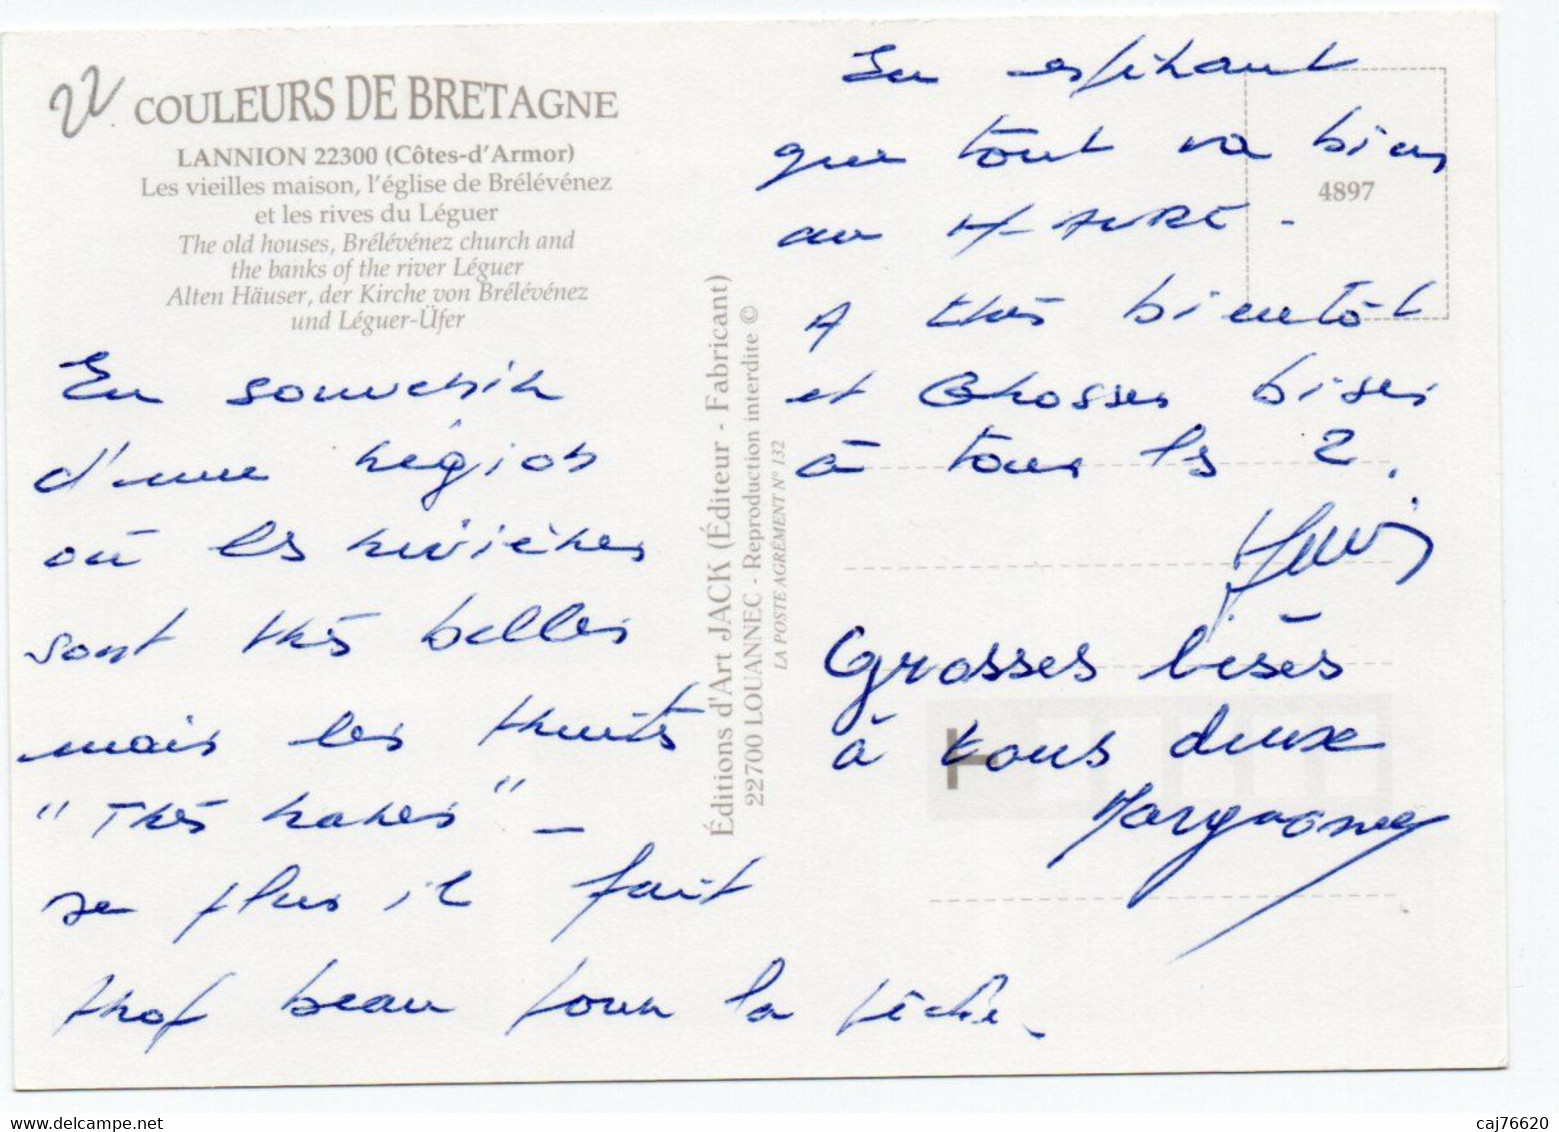 22
COULEURS DE BRETAGNE
LANNION 22300 (Côtes-d'Armor)
Les vieilles maison, l'église de Brélévénez
et les rives du Léguer
The old houses, Brélévénez church and
the banks of the river Léguer
Alten Häuser, der Kirche von Brélévénez
und Léguer-Üfer
En souvenir
d'une région
où les rivières
sont très belles
mais les truites
"Très rares" –
De plus il fait
trop beau pour la pêche.
Éditions d'Art JACK (Éditeur - Fabricant)
22700 LOUANNEC - Reproduction interdite ©
LA POSTE AGRÉMENT N° 132
4897
En espérant
que tout va bien
au HAVRE -
A très bientôt
et Grosses bises
à tous les 2.
Grosses bises
à tous deux
caj76620